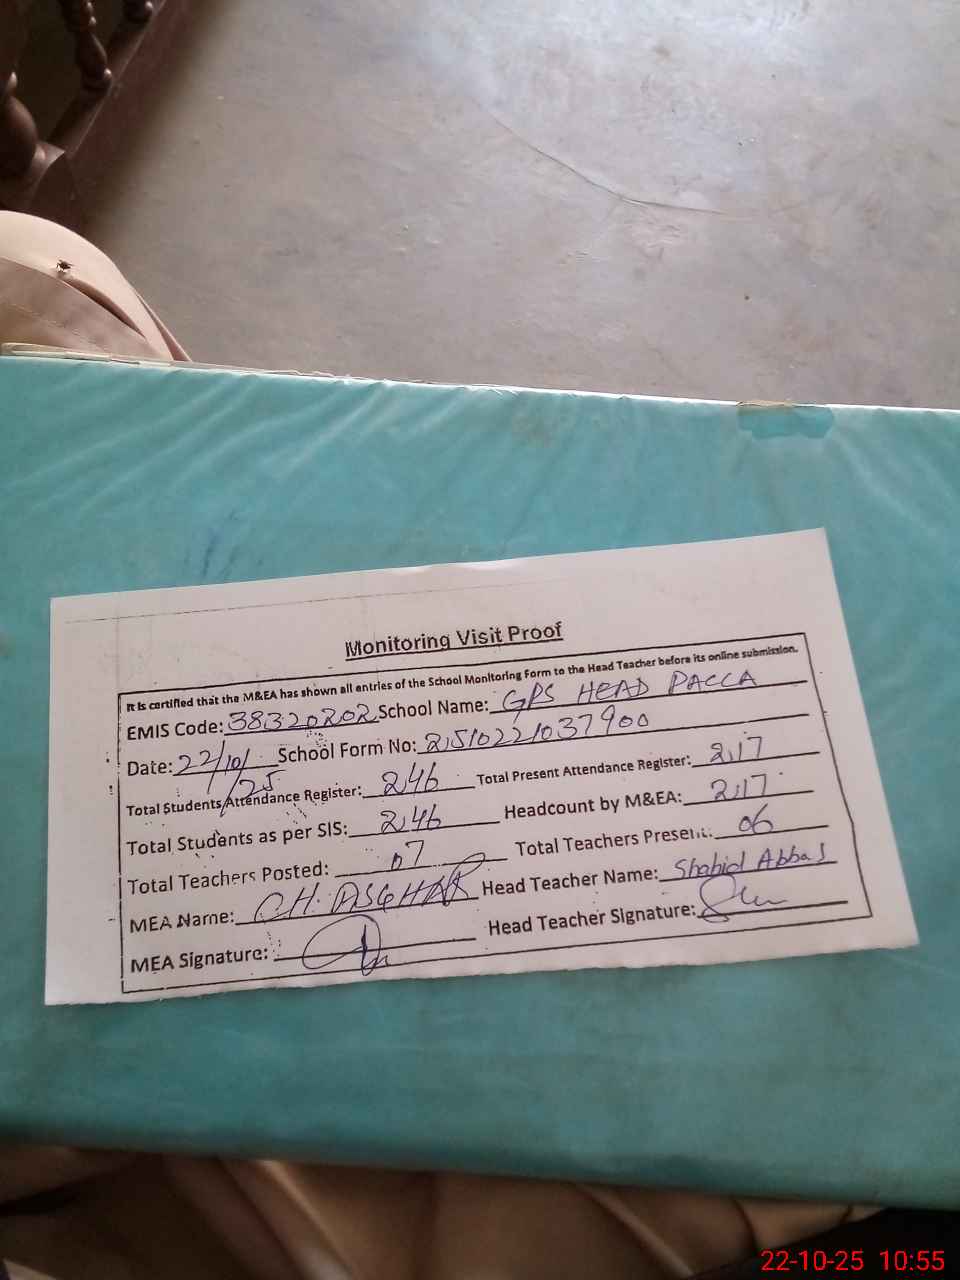 Monitoring Visit Proof
It is certified that the M&EA has shown all entries of the School Monitoring Form to the Head Teacher before its online submission.
EMIS Code: 38320202 School Name: GPS HEAD PACCA
Date: 22/10/25 School Form No: 2510221037900
Total Students Attendance Register: 246 Total Present Attendance Register: 217
Total Students as per SIS: 246 Headcount by M&EA: 217
Total Teachers Posted: 07 Total Teachers Present: 06
MEA Name: CH. ASGHAR Head Teacher Name: Shahid Abbas
MEA Signature: Head Teacher Signature:
22-10-25 10:55